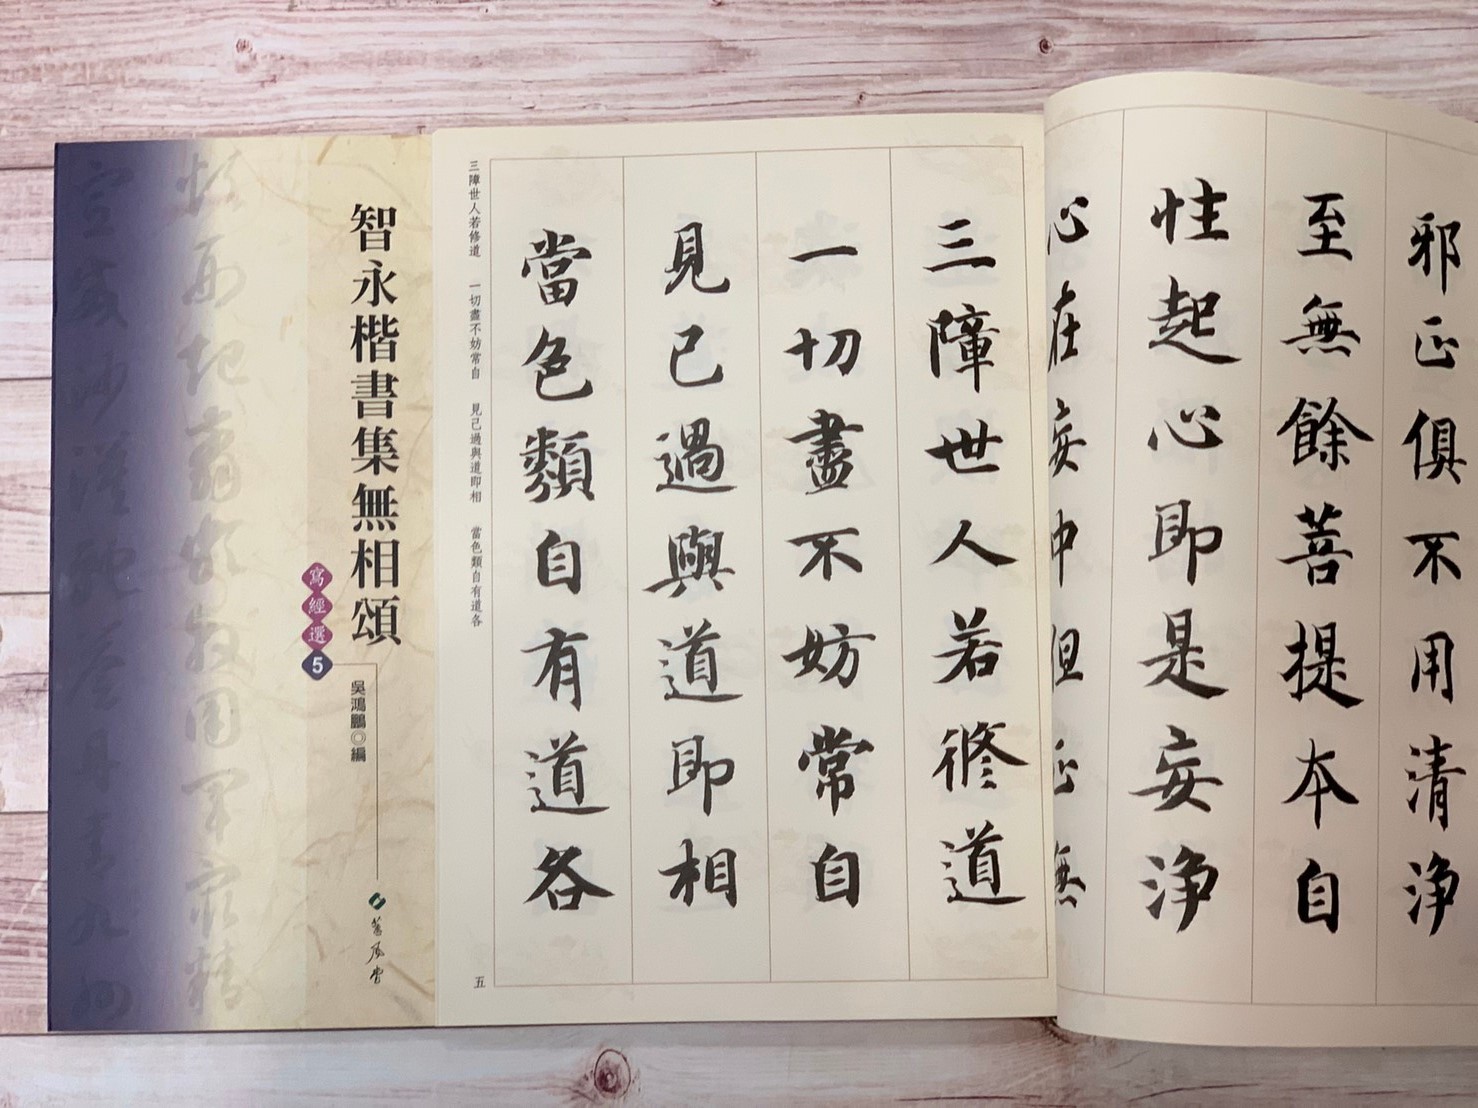 邪正俱不用清淨
至無餘菩提本自
性起心即是妄淨
心在妄中但正無
三障世人若修道
一切盡不妨常自
見己過與道即相
當色類自有道各
三障世人若修道 一切盡不妨常自 見己過與道即相 當色類自有道各
五
智永楷書集無相頌
寫經選5
吳鴻鵬◎編
蕙風堂